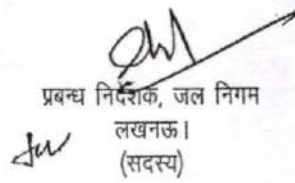 प्रबन्ध निदेशक, जल निगम
लखनऊ।
(सदस्य)